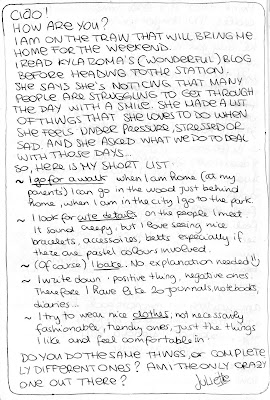 Ciao!
HOW ARE YOU?
I AM ON THE TRAIN THAT WILL BRING ME
HOME FOR THE WEEKEND.
I READ KYLA ROMA'S (WONDERFUL) BLOG
BEFORE HEADING TO THE STATION.
SHE SAYS SHE'S NOTICING THAT MANY
PEOPLE ARE STRUGGLING TO GET THROUGH
THE DAY WITH A SMILE. SHE MADE A LIST
OF THINGS THAT SHE LOVES TO DO WHEN
SHE FEELS UNDER PRESSURE, STRESSED OR
SAD. AND SHE ASKED WHAT WE DO TO DEAL
WITH THOSE DAYS...
SO, HERE IS MY SHORT LIST.
~ I go for a walk when I am home (at my
parents) I can go in the wood just behind
home, when I am in the city I go to the park.
~ I look for cute details on the people I meet
It sound creepy, but I love seeing nice
bracelets, accessoires, belts especially if
there are pastel colours involved.
~ (Of course) I bake. No explanation needed!
~ I write down positive thing, negative ones
Therefore I have like 20 journals, notebooks,
diaries...
~ I try to wear nice clothes, not necessarily
fashionable, trendy ones, just the things
I like and feel comfortable in.
DO YOU DO THE SAME THINGS, OR COMPLETE
LY DIFFERENT ONES? AM I THE ONLY CRAZY
ONE OUT THERE?
Juliette